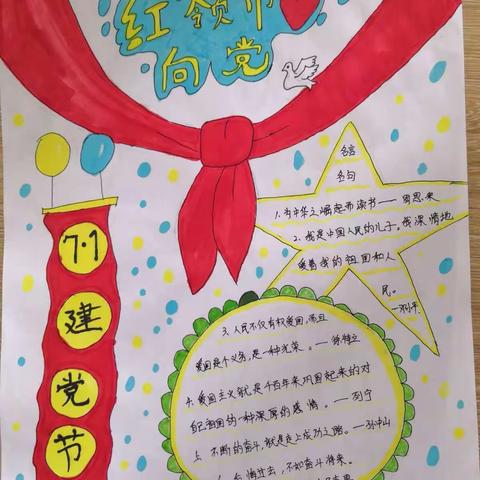 红领巾
向党
7·1
建
党
节
名言
名句
1. 为中华之崛起而读书——周恩来
2. 我是中国人民的儿子。我深情地
爱着我的祖国和人
民。
3. 人民不仅有权爱国,而且
爱国是个义务,是一种光荣。——徐特立
4. 爱国主义就是千百年来巩固起来的对
纪祖国的一种深厚的感情。——列宁
5. 不断的奋斗,就是走上成功之路。——孙中山
后悔过去,不如奋斗将来。